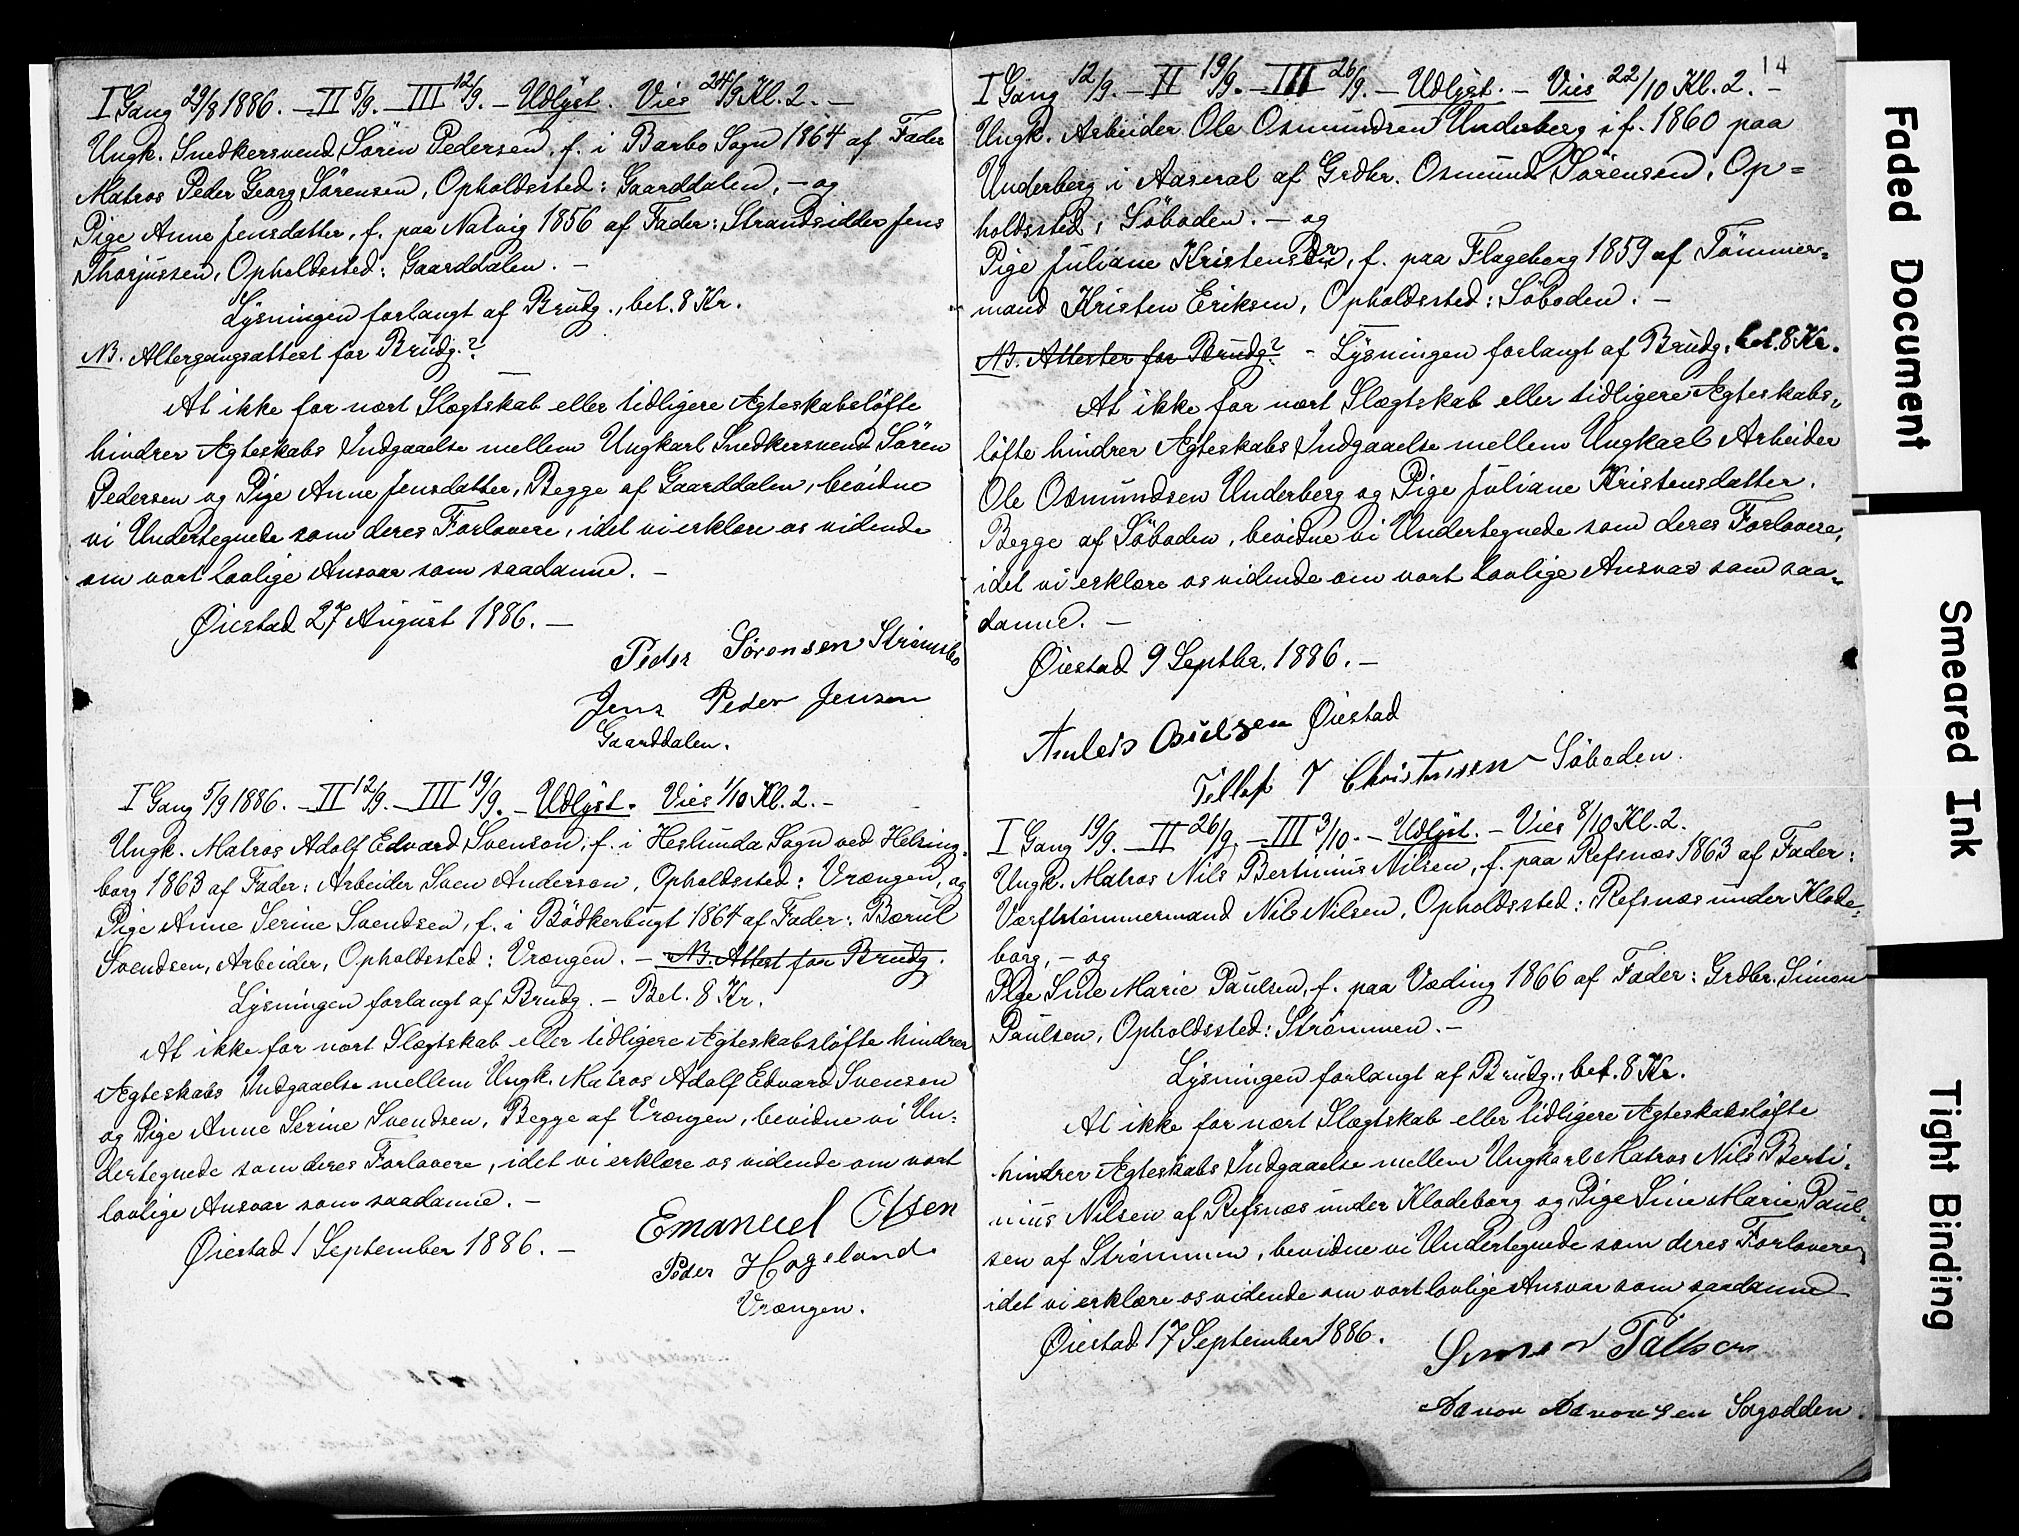 I Gang 29/8 1886. – II 5/9. – III 12/9. – Udlyst. Vies 24/9 Kl. 2. –
Ungk. Snedkersvend Sören Pedersen, f. i Barbo Sogn 1864 af Fader
Matros Peder Georg Sörensen, Opholdssted: Gaarddalen, – og
Pige Anne Jensdatter, f. paa Natvig 1856 af Fader: Strandsidder Jens
Thorjussen, Opholdssted: Gaarddalen. –
Lysningen forlangt af Brudg., bet. 8 Kr.
NB. Altergangsattest for Brudg.?
At ikke for nært Slægtskab eller tidligere Ægteskabsløfte
hindrer Ægteskabs Indgaaelse mellem Ungkarl Snedkersvend Sören
Pedersen og Pige Anne Jensdatter, Begge af Gaarddalen, bevidne
vi Undertegnede som deres Forlovere, idet vi erklære os vidende
om vort lovlige Ansvar som saadanne. –
Øiestad 27 August 1886. –
Peder Sørensen Strømsbo
Jens Peder Jensen
Gaarddalen.
I Gang 5/9 1886. – II 12/9. – III 19/9. – Udlyst. Vies 1/10 Kl. 2. –
Ungk. Matros Adolf Edvard Svenson, f. i Heslunda Sogn ved Helsing-
borg 1863 af Fader: Arbeider Sven Anderson, Opholdssted: Vrængen, og
Pige Anne Serine Svendsen, f. i Bödkerbugt 1864 af Fader: Bærul
Svendsen, Arbeider, Opholdssted: Vrængen. – NB. Attest for Brudg.
Lysningen forlangt af Brudg. – Bet. 8 Kr.
At ikke for nært Slægtskab eller tidligere Ægteskabsløfte hindrer
Ægteskabs Indgaaelse mellem Ungk. Matros Adolf Edvard Svenson
og Pige Anne Serine Svendsen, Begge af Vrængen, bevidne vi Un-
dertegnede som deres Forlovere, idet vi erklære os vidende om vort
lovlige Ansvar som saadanne. –
Øiestad 1 September 1886. –
Emanuel Olsen
Peder Hageland
Vrængen.
14
I Gang 12/9. – II 19/9. – III 26/9. – Udlyst. – Vies 22/10 Kl. 2. –
Ungk. Arbeider Ole Osmundsen Underberg, f. 1860 paa
Underberg i Aaseral af Grdbr. Osmund Sörensen, Op-
holdssted: Söboden. – og
Pige Juliane Kristensdr, f. paa Flageborg 1859 af Tömmer-
mand Kristen Eriksen, Opholdssted: Söboden. –
NB. Attester for Brudg? – Lysningen forlangt af Brudg., bet. 8 Kr.
At ikke for nært Slægtskab eller tidligere Ægteskabs-
løfte hindrer Ægteskabs Indgaaelse mellem Ungkarl Arbeider
Ole Osmundsen Underberg og Pige Juliane Kristensdatter,
Begge af Söboden, bevidne vi Undertegnede som deres Forlovere,
idet vi erklære os vidende om vort lovlige Ansvar som saa-
danne. –
Øiestad 9 Septbr. 1886. –
Øiestad
Tellef T Christensen Söboden.
I Gang 19/9. – II 26/9. – III 3/10. – Udlyst. – Vies 8/10 Kl. 2.
Ungk. Matros Nils Bertinius Nilsen, f. paa Refsnæs 1863 af Fader:
Værftstømmermand Nils Nilsen, Opholdssted: Refsnæs under Klode-
borg, – og
Pige Sine Marie Paulsen, f. paa Væding 1866 af Fader: Grdbr. Simon
Paulsen, Opholdssted: Strømmen. –
Lysningen forlangt af Brudg., bet. 8 Kr.
At ikke for nært Slægtskab eller tidligere Ægteskabsløfte
hindrer Ægteskabs Indgaaelse mellem Ungkarl Matros Nils Berti-
nius Nilsen af Refsnæs under Klodeborg og Pige Sine Marie Paul-
sen af Strømmen, bevidne vi Undertegnede som deres Forlovere,
idet vi erklære os vidende om vort lovlige Ansvar som saadanne
Øiestad 17 September 1886.
Aanon Aanonsen Sagodden.
Faded Document
Smeared Ink
Tight Binding